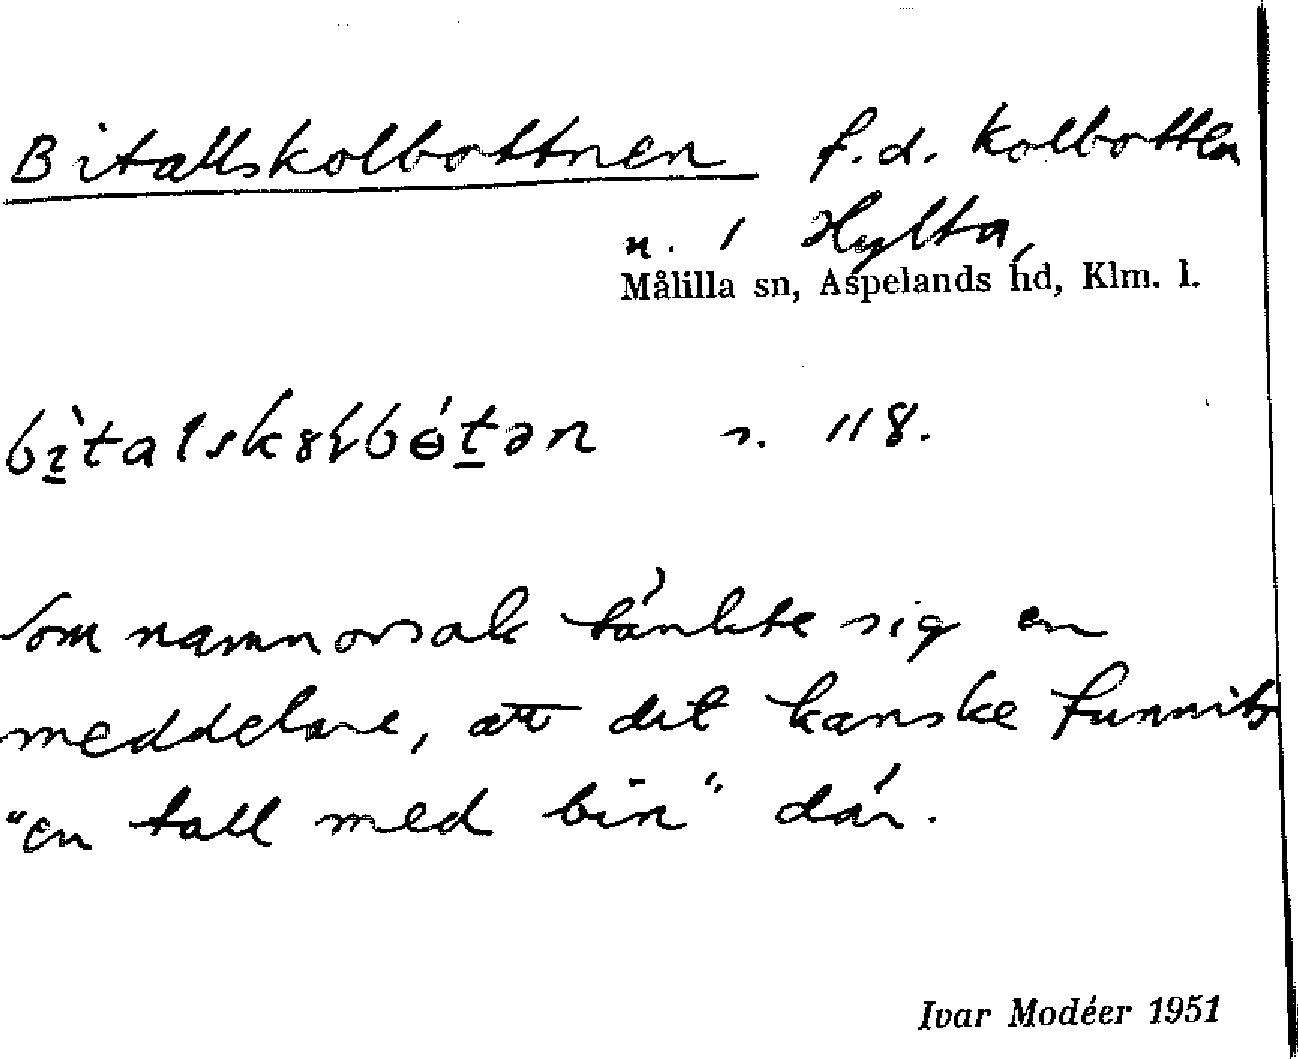 Bitallskolbottnen f.d. kolbotten
n. i Hylta,
Målilla sn, Aspelands hd, Klm. l.
s. 118.
Som namnorsak tänkte sig en
meddelare, att det kanske funnits
"en tall med bin" där.
Ivar Modéer 1951